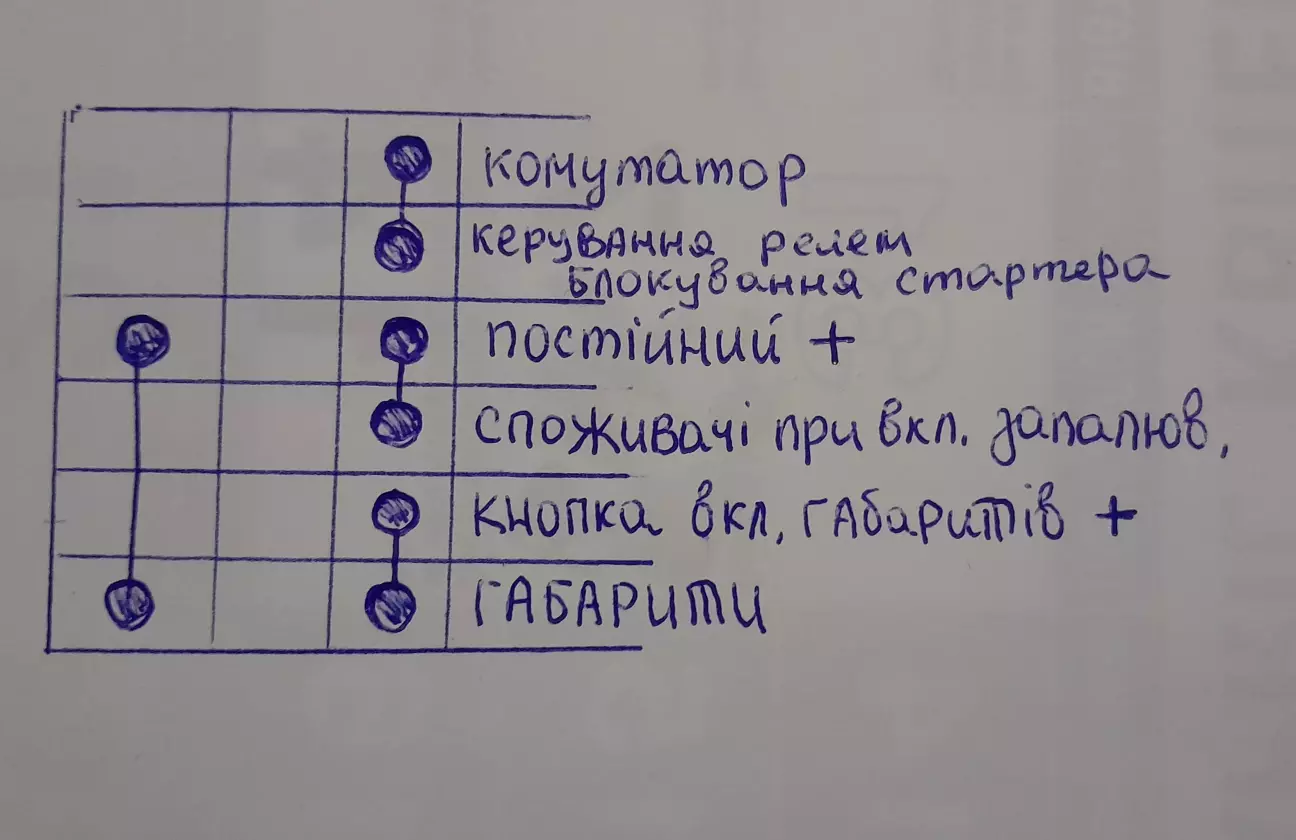 комутатор
керування релем
блокування стартера
постійний +
споживачі при вкл. запалюв,
кнопка вкл, габаритів +
ГАБАРИТИ